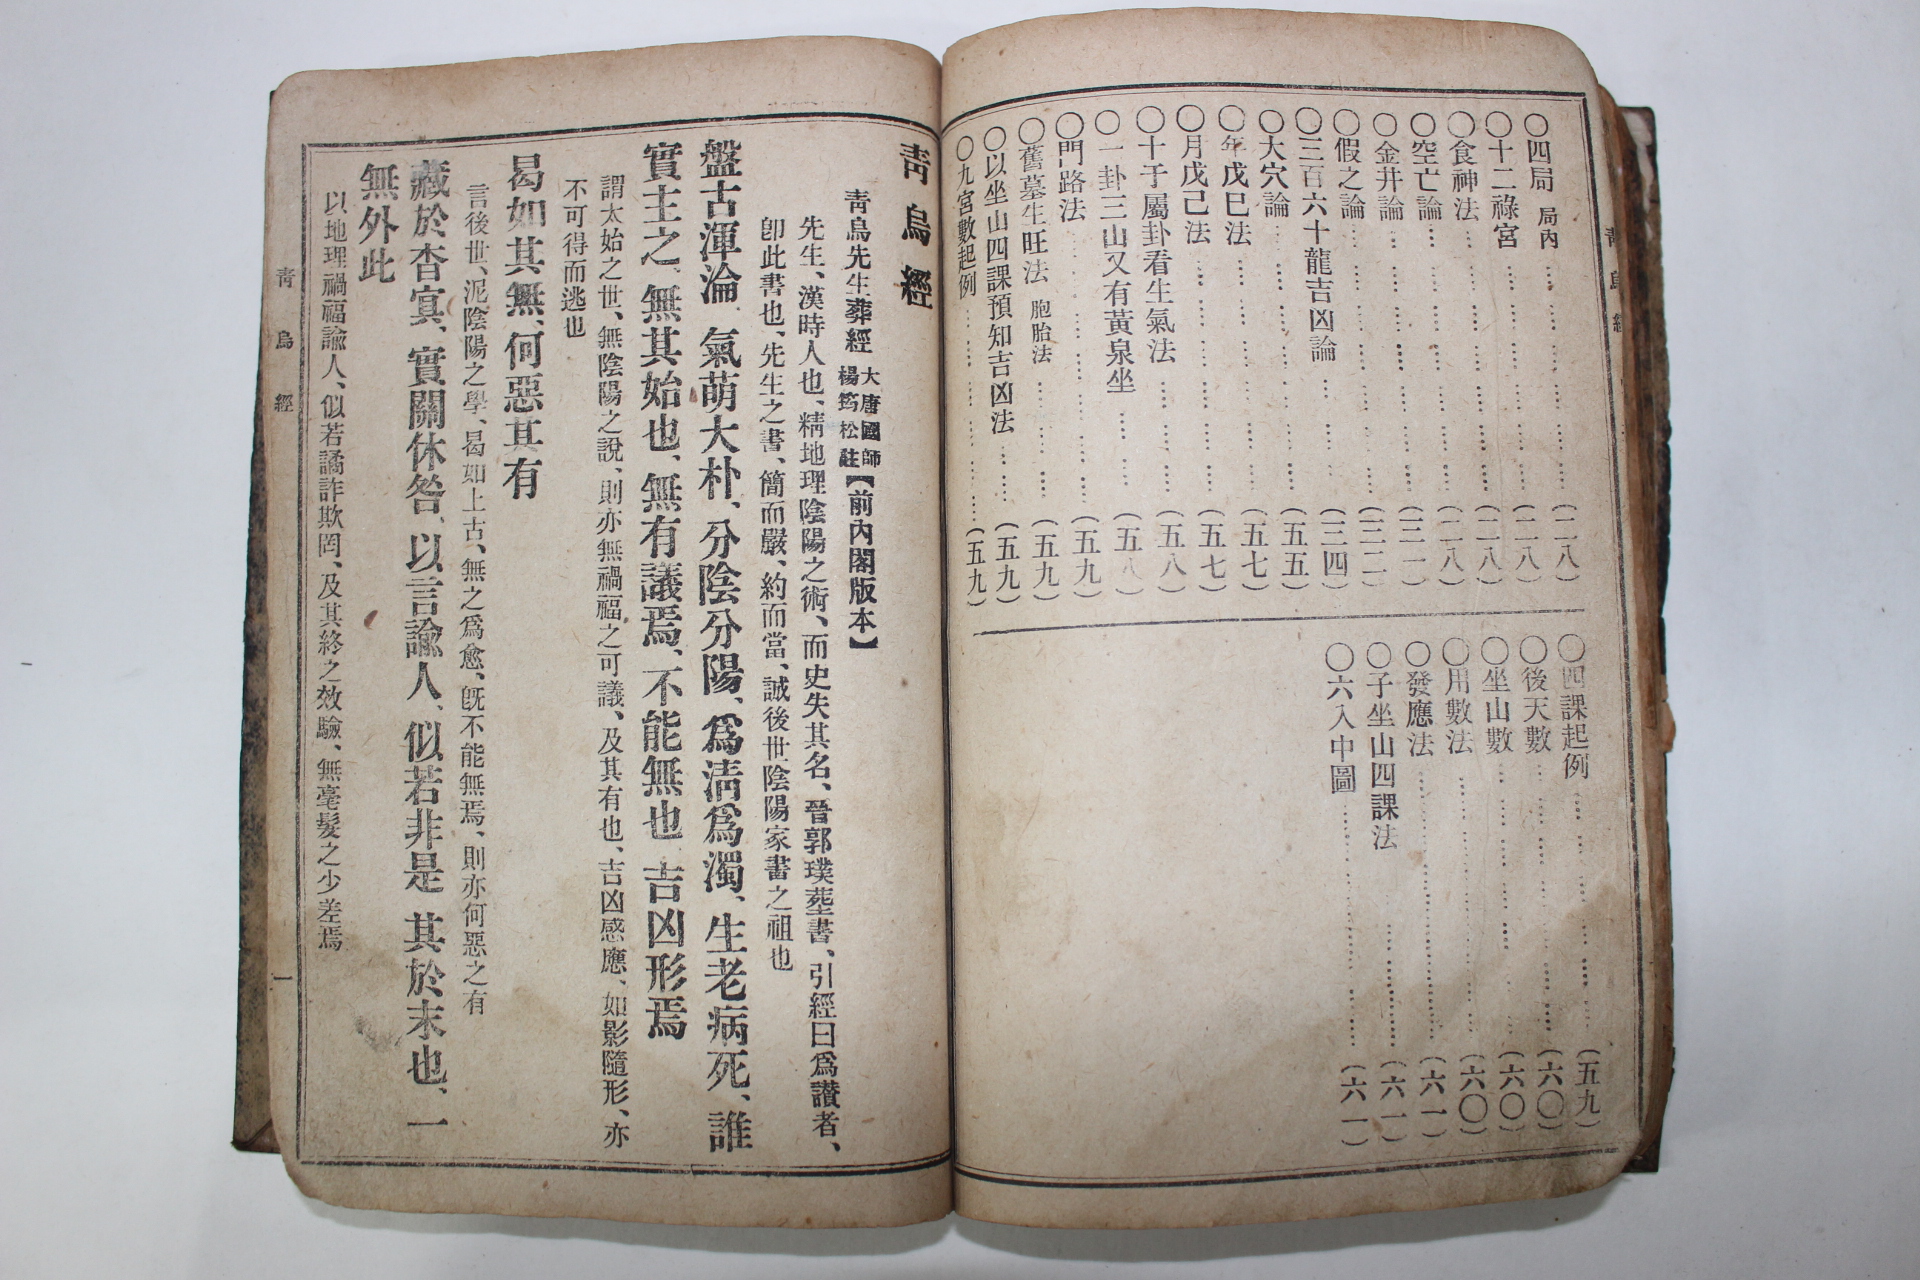 ○四局 局內……(二八)
○十二祿宮……(二八)
○食神法……(二八)
○空亡論……(二八)
○金井論……(三一)
○假之論……(三二)
○三百六十龍吉凶論……(三四)
○大穴論……(五五)
○年戊巳法……(五七)
○月戊己法……(五七)
○十子屬卦看生氣法……(五八)
○一卦三山又有黃泉坐……(五八)
○門路法……(五九)
○舊墓生旺法 胞胎法……(五九)
○以坐山四課預知吉凶法……(五九)
○九宮數起例……(五九)
○四課起例……(五九)
○後天數……(六〇)
○坐山數……(六〇)
○用數法……(六〇)
○發應法……(六一)
○子坐山四課法……(六一)
○六入中圖……(六一)
靑烏經
靑烏先生葬經 大唐國師楊筠松註【前內閣版本】
先生、漢時人也、精地理陰陽之術、而史失其名、晉郭璞葬書、引經曰爲讃者、
卽此書也、先生之書、簡而嚴、約而當、誠後世陰陽家書之祖也
盤古渾淪、氣萌大朴、分陰分陽、爲淸爲濁、生老病死、誰
實主之、無其始也、無有議焉、不能無也、吉凶形焉
謂太始之世、無陰陽之說、則亦無禍福之可議、及其有也、吉凶感應、如影隨形、亦
不可得而逃也
曷如其無、何惡其有
言後世、泥陰陽之學、曷如上古、無之爲愈、旣不能無焉、則亦何惡之有
藏於杳冥、實關休咎、以言諭人、似若非是、其於末也、一
無外此
以地理禍福諭人、似若譎詐欺罔、及其終之效驗、無毫髮之少差焉
靑烏經
一